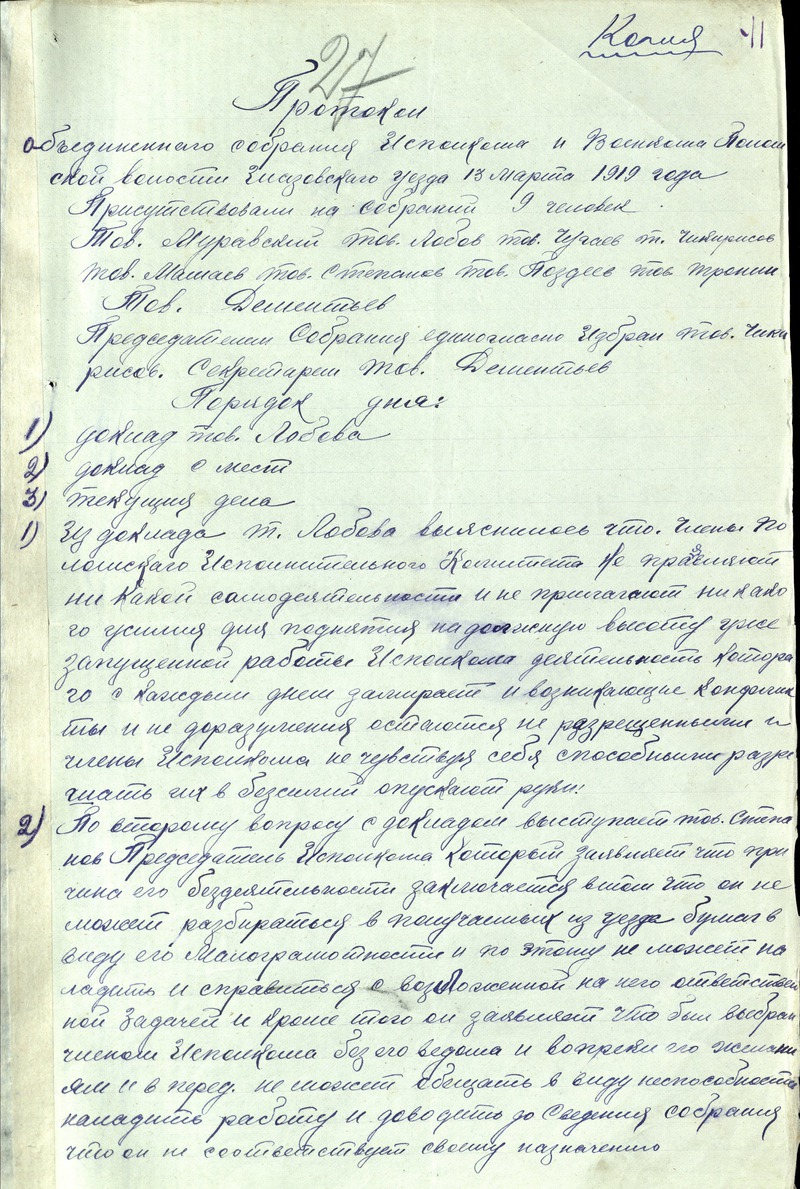 Копия 41
27
Протокол
объединеннаго собрания Исполкома и Военкома Полом
ской волости Глазовскаго уезда 13 Марта 1919 года
Присутствовали на собраний 9 человек.
Тов. Муравский тов. Лобов тов. Чугаев т. Чикирисов
тов. Машаев тов. Степанов тов. Поздеев тов Тронин
Тов. Дементьев
Председателем Собрания единогласно Избран тов. Чики
рисов. Секретарем тов. Дементьев
Порядок дня:
1) доклад тов. Лобова
2) доклад с мест
3) текущия дела
1) Из доклада т. Лобова выяснилось что. Члены По
ломскаго Исполнительного Комитета Не проявляют
ни какой самодеятельности и не прилагают ни како
го усилия для поднятия на должную высоту уже
запущенной работы Исполкома деятельность котора
го с каждым днем замирает и возникающие конфлик
ты и не доразумения остаются не разрешенными и
члены Исполкома не чувствуя себя способными разре
шать их в безсилий опускают руки!
2) По второму вопросу с докладом выступает тов. Степа
нов Председатель Исполкома который заявляет что при
чина его бездеятельности заключается в том что он не
может разбираться в получаемых из уезда бумаг в
виду его Малограмотности и по этому не может на
ладить и справиться с возложенной на него ответствен
ной задачей и кроме того он заявляет что был выбран
членом Исполкома без его ведома и вопреки его желани
ям и в перед. не может обещать в виду неспособности
наладить работу и доводить до Сведения собрания
что он не соответствует своему назначению